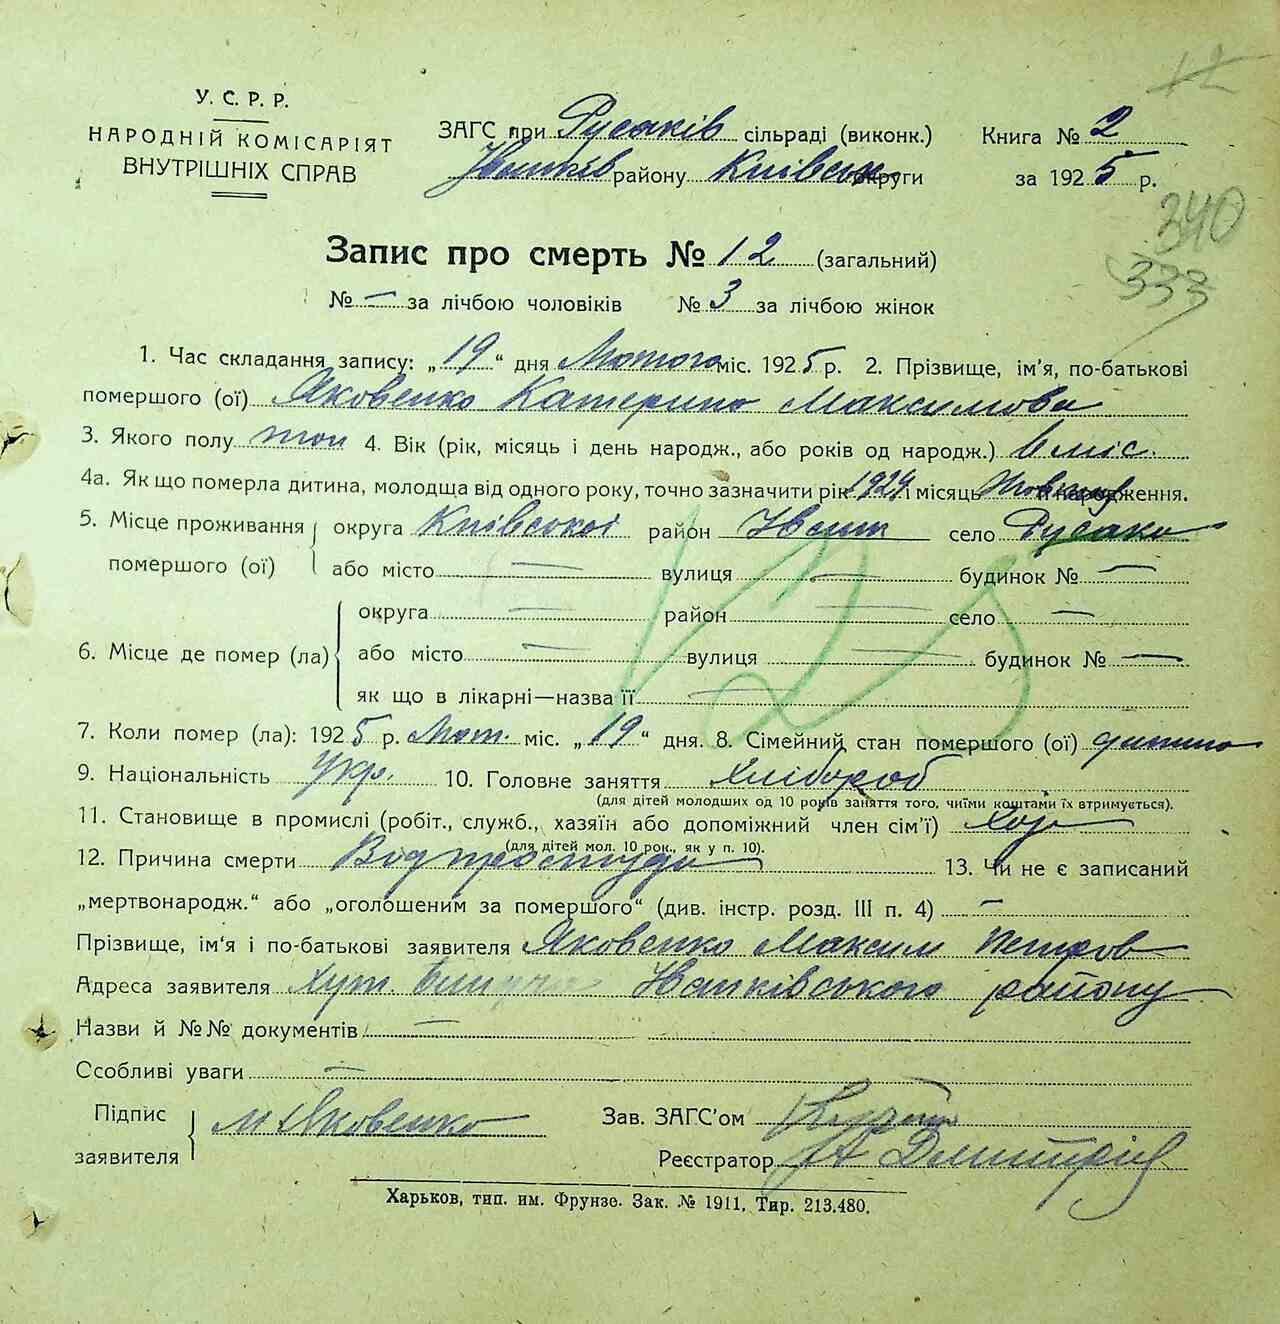 12
У. С. Р. Р.
НАРОДНІЙ КОМІСАРІЯТ
ВНУТРІШНІХ СПРАВ
ЗАГС при Русаків сільраді (виконк.)
Іванків району Київськ округи
Книга № 2
за 1925 р.
340
333
Запис про смерть № 12 (загальний)
№ — за лічбою чоловіків № 3 за лічбою жінок
1. Час складання запису: „19“ дня Лютого міс. 1925 р. 2. Прізвище, ім'я, по-батькові
помершого (ої) Яковенко Катерина Максимова
3. Якого полу жон 4. Вік (рік, місяць і день народж., або років од народж.) міс.
4а. Як що померла дитина, молодща від одного року, точно зазначити рік 1924 і місяць Жовтня народження.
5. Місце проживання помершого (ої) округа Київської район Іванк село Русаки
або місто — вулиця — будинок № —
6. Місце де помер (ла) округа — район — село —
або місто — вулиця — будинок № —
як що в лікарні—назва її —
7. Коли помер (ла): 1925 р. Лют. міс. „19“ дня. 8. Сімейний стан помершого (ої) дитина
9. Національність Укр. 10. Головне заняття Хлібороб
(для дітей молодших од 10 років заняття того, чиїми коштами їх втримується).
11. Становище в промислі (робіт., служб., хазяїн або допоміжний член сім'ї) Хаз
(для дітей мол. 10 рок., як у п. 10).
12. Причина смерти Від простуди 13. Чи не є записаний
„мертвонародж.“ або „оголошеним за помершого“ (див. інстр. розд. III п. 4) —
Прізвище, ім'я і по-батькові заявителя Яковенко Максим Петров
Адреса заявителя Хут. Іванківського району
Назви й №№ документів —
Ссобливі уваги —
Підпис заявителя М Яковенко
Зав. ЗАГС'ом
Реєстратор А Дмитрів
Харьков, тип. им. Фрунзе. Зак. № 1911, Тир. 213.480.